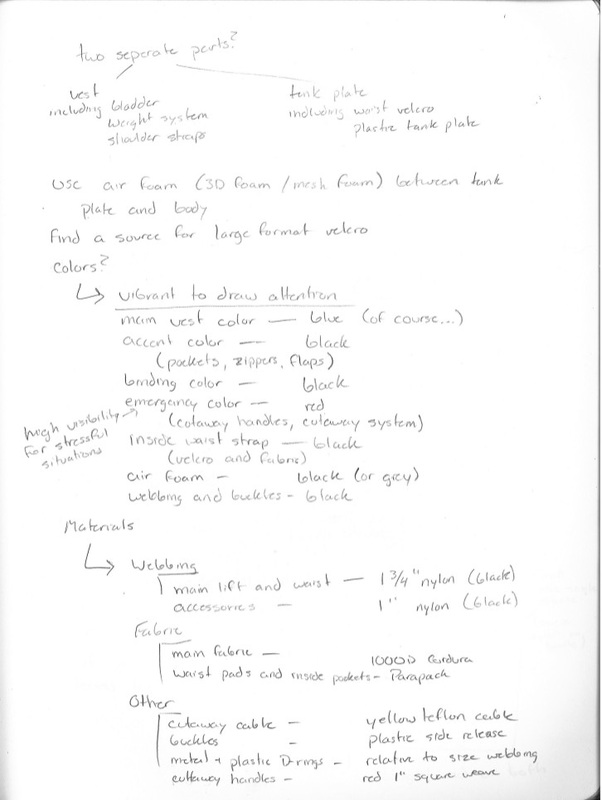 two seperate parts?
vest
including bladder
weight system
shoulder straps
tank plate
including waist velcro
plastic tank plate
Use air foam (3D foam / mesh foam) between tank
plate and body
Find a source for large format velcro
Colors?
↳ vibrant to draw attention
main vest color — blue (of course...)
accent color — black
(pockets, zippers, flaps)
binding color — black
emergency color — red
(cutaway handles, cutaway system)
high visibility →
for stressful
situations
inside waist strap — black
(velcro and fabric)
air foam - black (or grey)
webbing and buckles - black
Materials
↳ Webbing
main lift and waist — 1 3/4" nylon (black)
accessories — 1" nylon (black)
Fabric
main fabric — 1000D Cordura
waist pads and inside pockets - Parapack
Other
cutaway cable - yellow teflon cable
buckles - plastic side release
metal + plastic D-rings - relative to size webbing
cuttaway handles - red 1" square weave